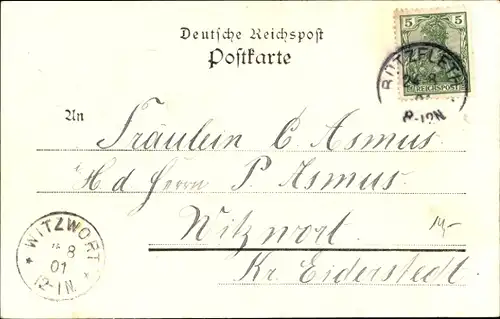 Deutsche Reichspost
Postkarte
5 5
REICHSPOST
BÜTZFLETH
8
8-12N.
An
Fräulein C Asmus
H d Herrn P Asmus
Witzwort
Kr. Eiderstedt.
WITZWORT
8
01
12-1N.